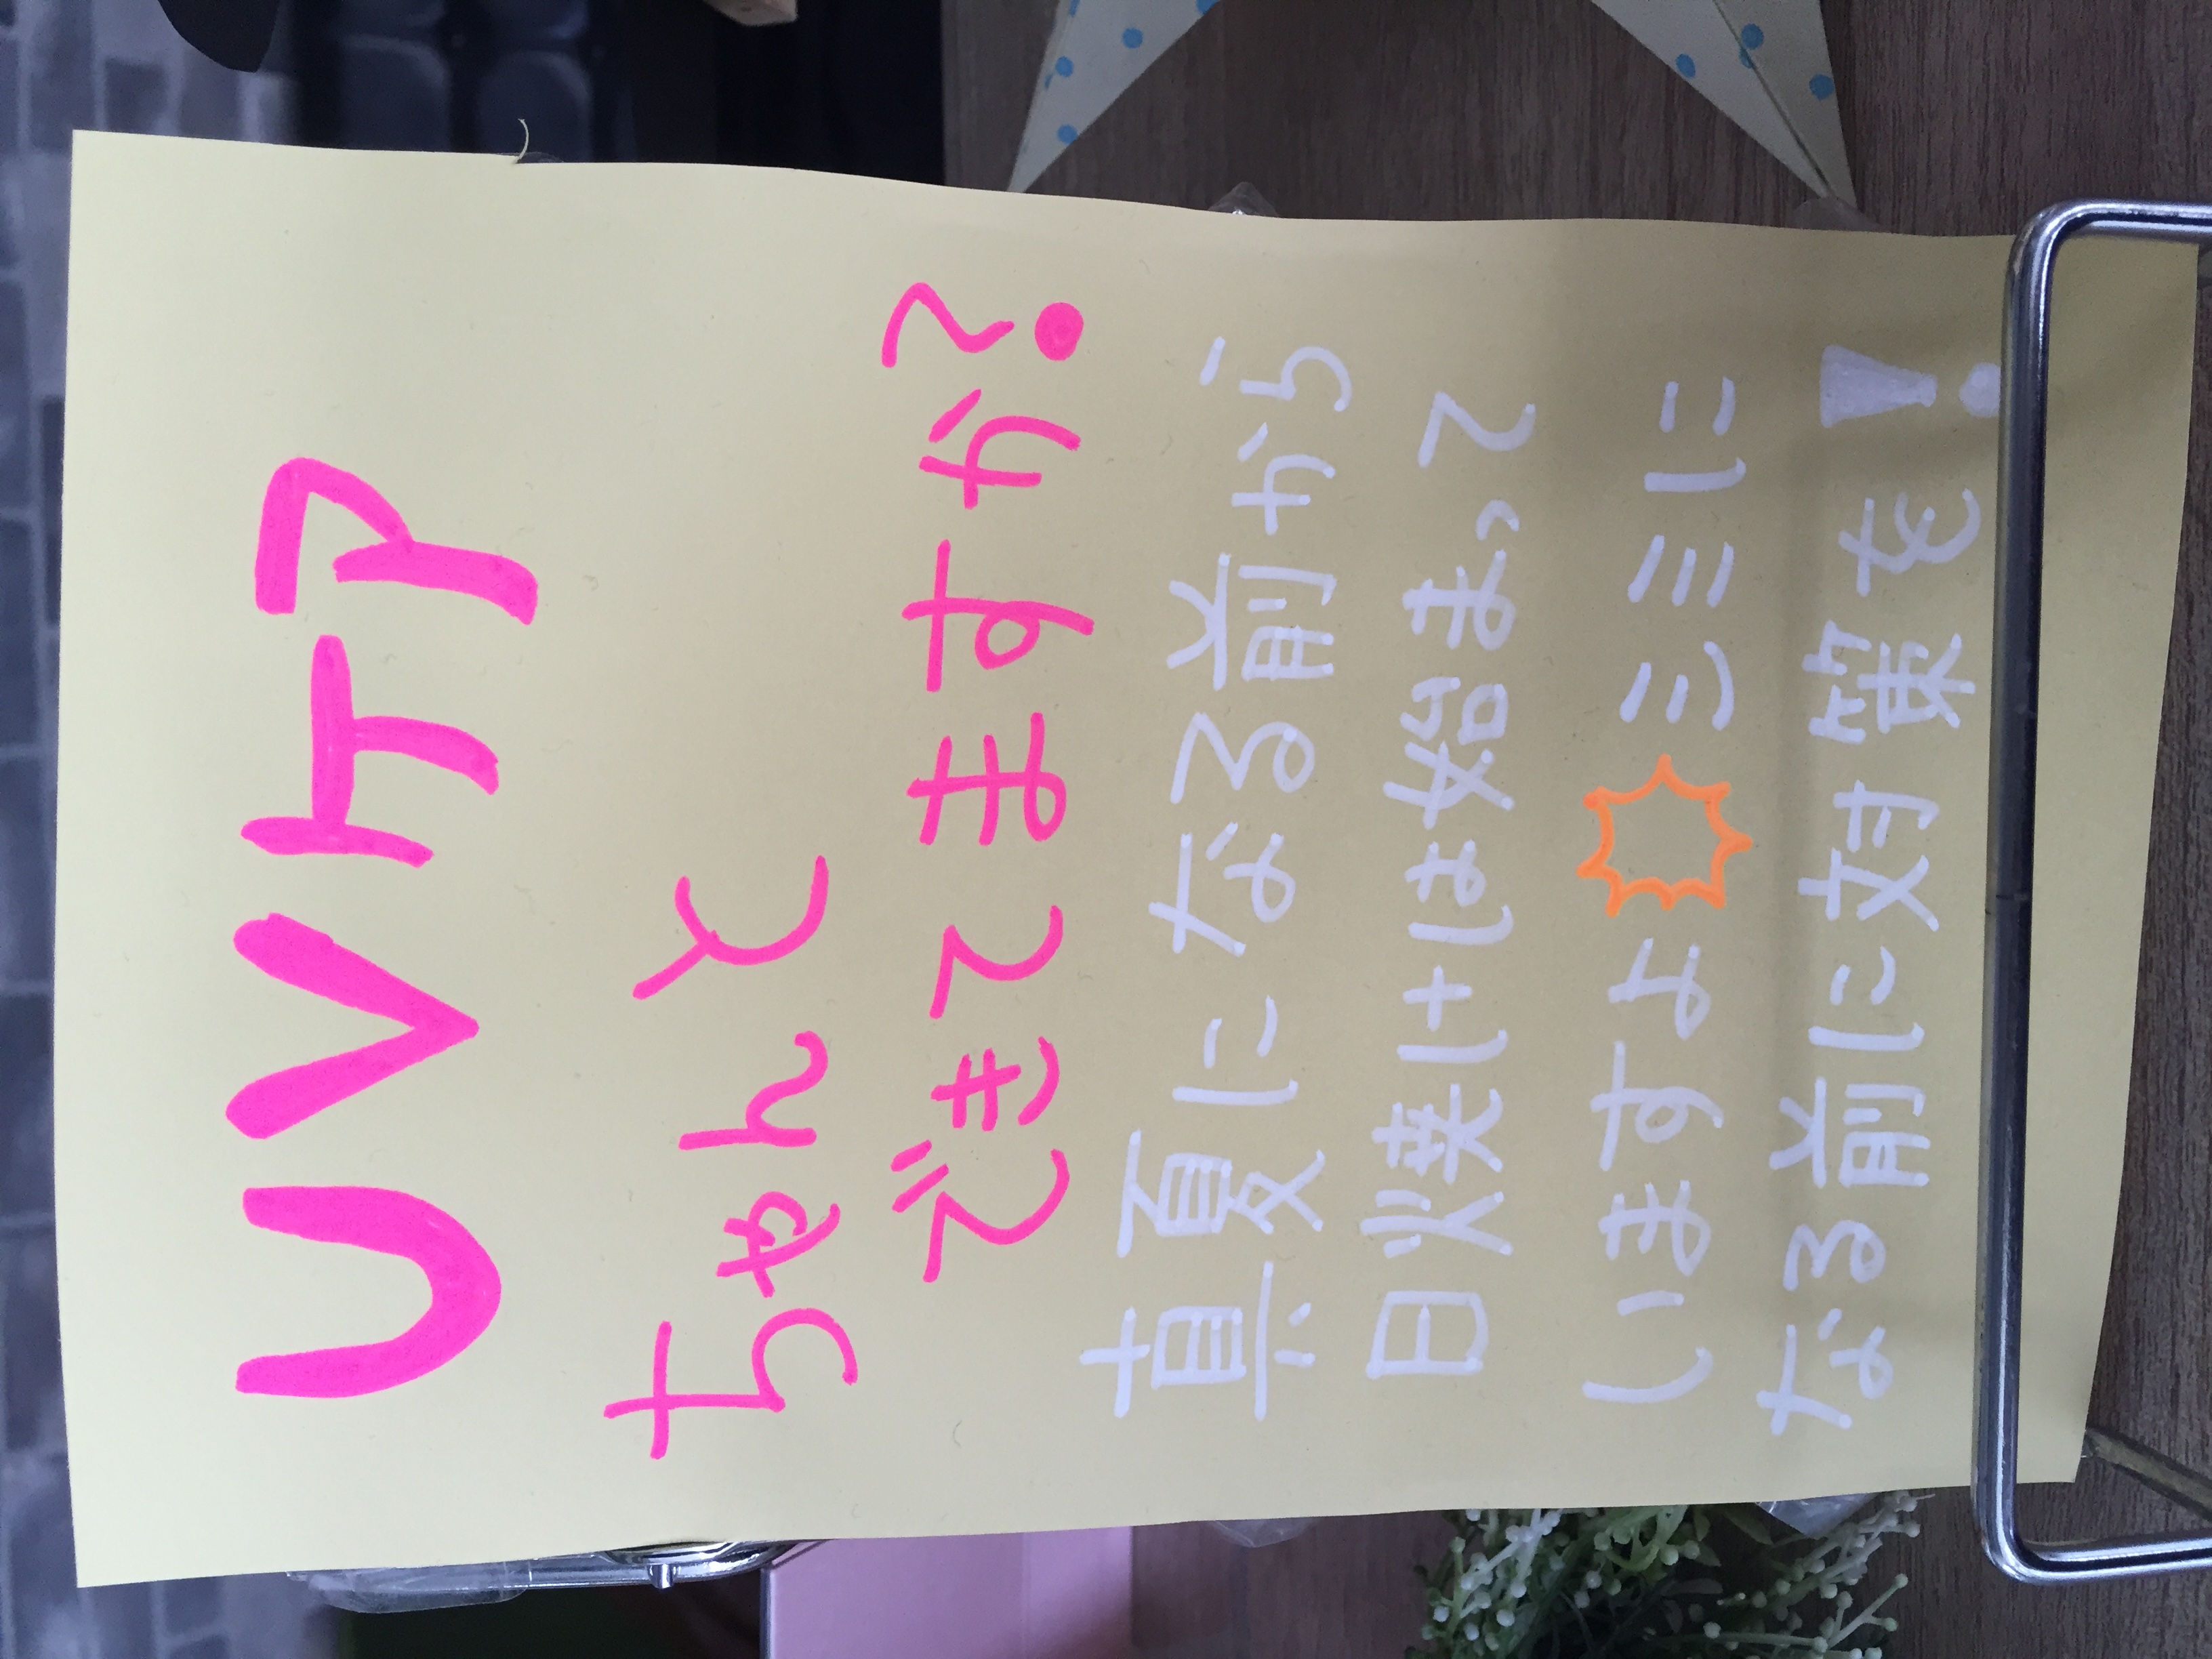 UVケア
ちゃんと
できてますか?
真夏になる前から
日焼けは始まって
いますよ シミに
なる前に対策を!